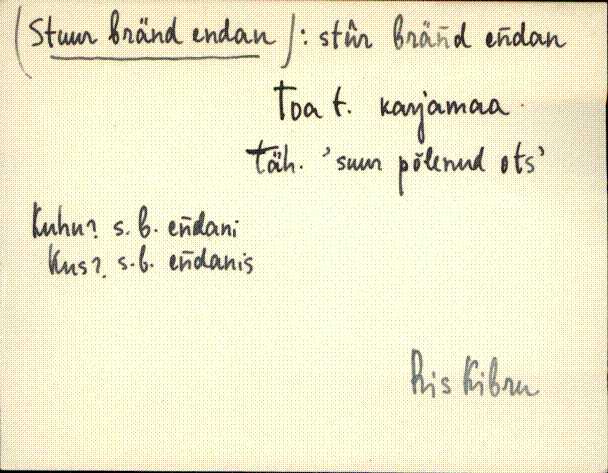 (Stuur bränd endan): stûr brän̄d en̄dan
Toa t. karjamaa.
Täh. 'suur põlenud ots'
Kuhu? s. b. en̄dani
Kus? s. b. en̄danis
Ris Kibru